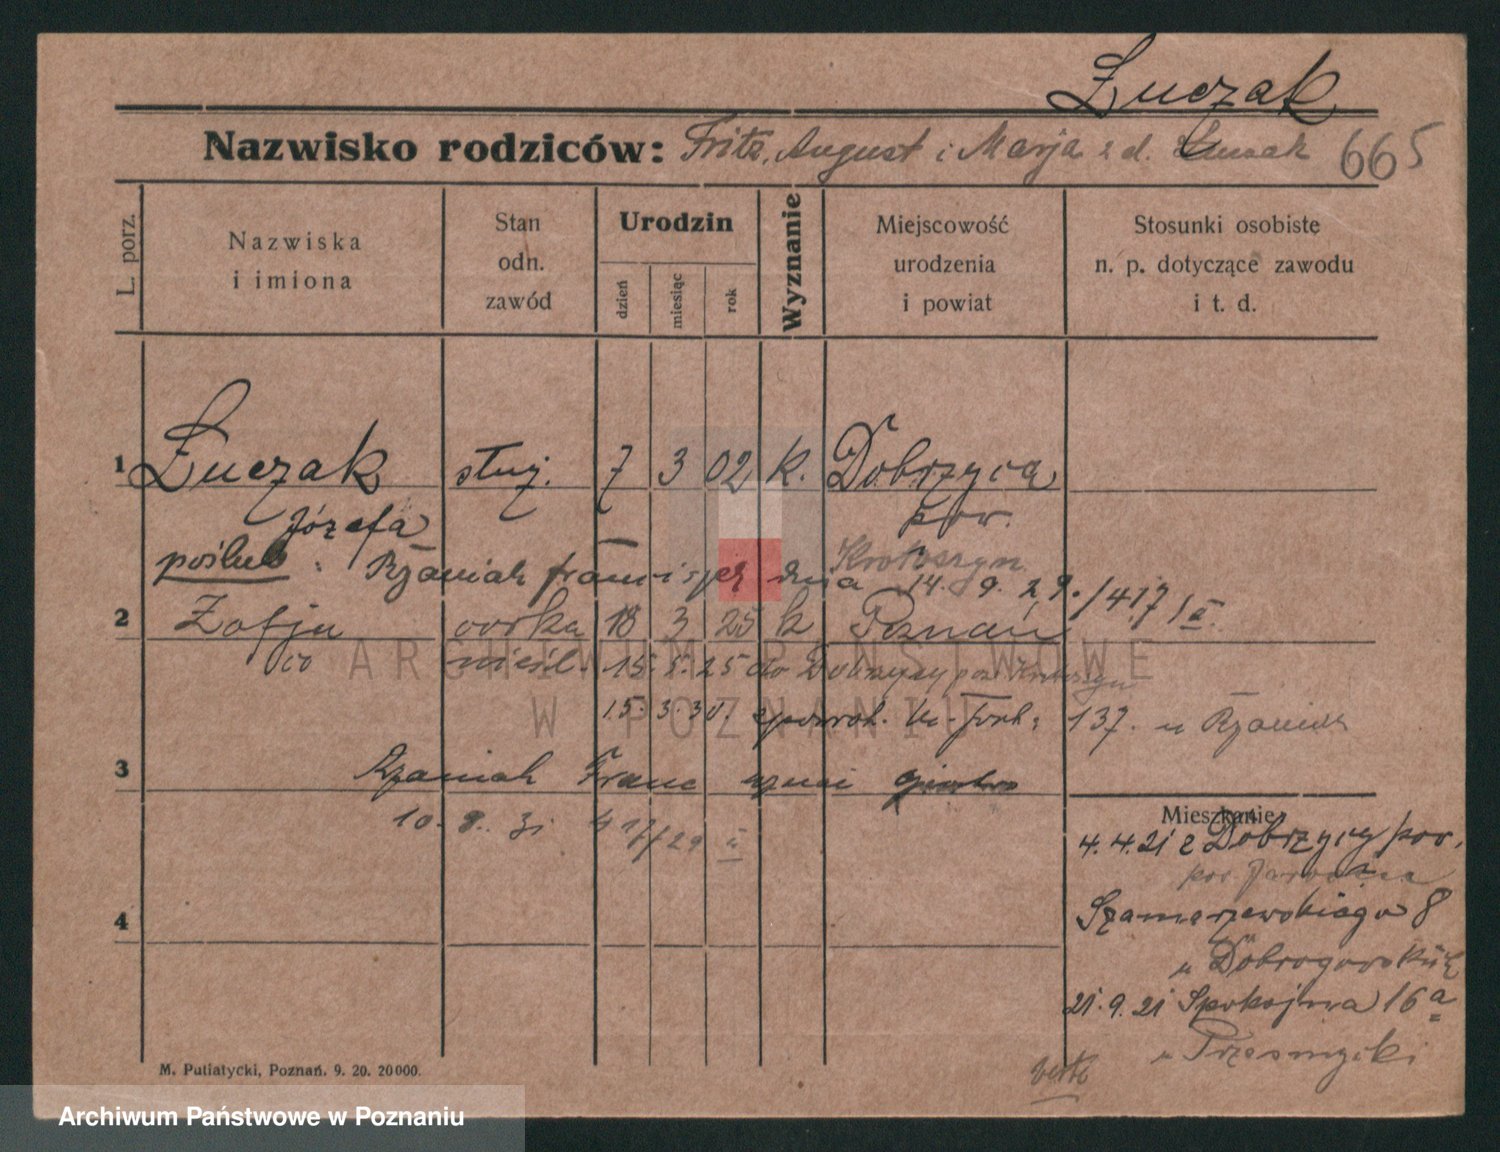 Łuczak
Nazwisko rodziców: Fritz, August i Marja z d. Łuczak 665
L. porz.
Nazwiska
i imiona
Stan
odn.
zawód
Urodzin
dzień
miesiąc
rok
Wyznanie
Miejscowość
urodzenia
i powiat
Stosunki osobiste
n. p. dotyczące zawodu
i t. d.
1 Łuczak służ. 7 3 02 k. Dobrzyca
Józefa pow.
Krotoszyn
poślub: Rzaniak dnia 14. 9. 29. /417/II.
2 Zofja córka 18 3 25 k Poznań
nieśl. 15. 5. 25 do Dobrzycy pow.
15. 3. 30. 137. u Rzaniak
3 Rzaniak Franc
10. 8. 31 417/29 II
Mieszkanie
4.4.21 z Dobrzycy pow.
pow Jarocin
4 Szamarzewskiego 8
u
21.9.21 Spokojna 16a
u Przesmycki
verte
M. Putiatycki, Poznań. 9. 20. 20000.
ARCHIWUM PAŃSTWOWE
W POZNANIU
Archiwum Państwowe w Poznaniu